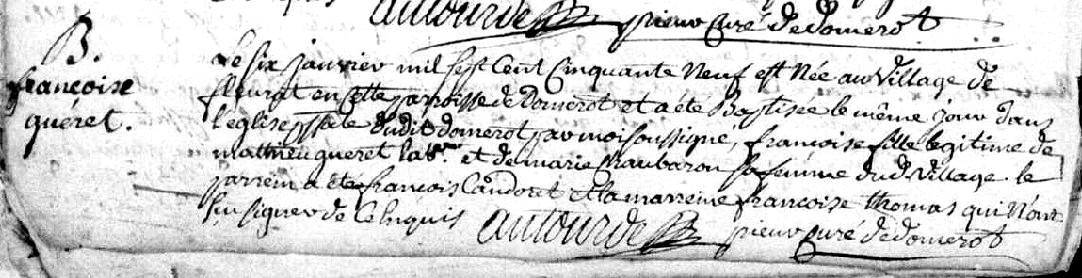 autourde prieur Curé de domerot
B.
françoise
quéret.
Le six janvier mil sept Cent Cinquante Neuf est Née au Village de
fleurat en cette parroisse de Domerot et a été Baptisée le même jour dans
l'église pssale dudit domerot par moi soussigné, françoise fille legitime de
mathieu queret lab.r et de marie Chaubaron sa femme dud. Village. le
parrein a été françois Candoret et la marreine françoise thomas qui n'ont
su signer de ce Enquis autourde prieur Curé de domerot